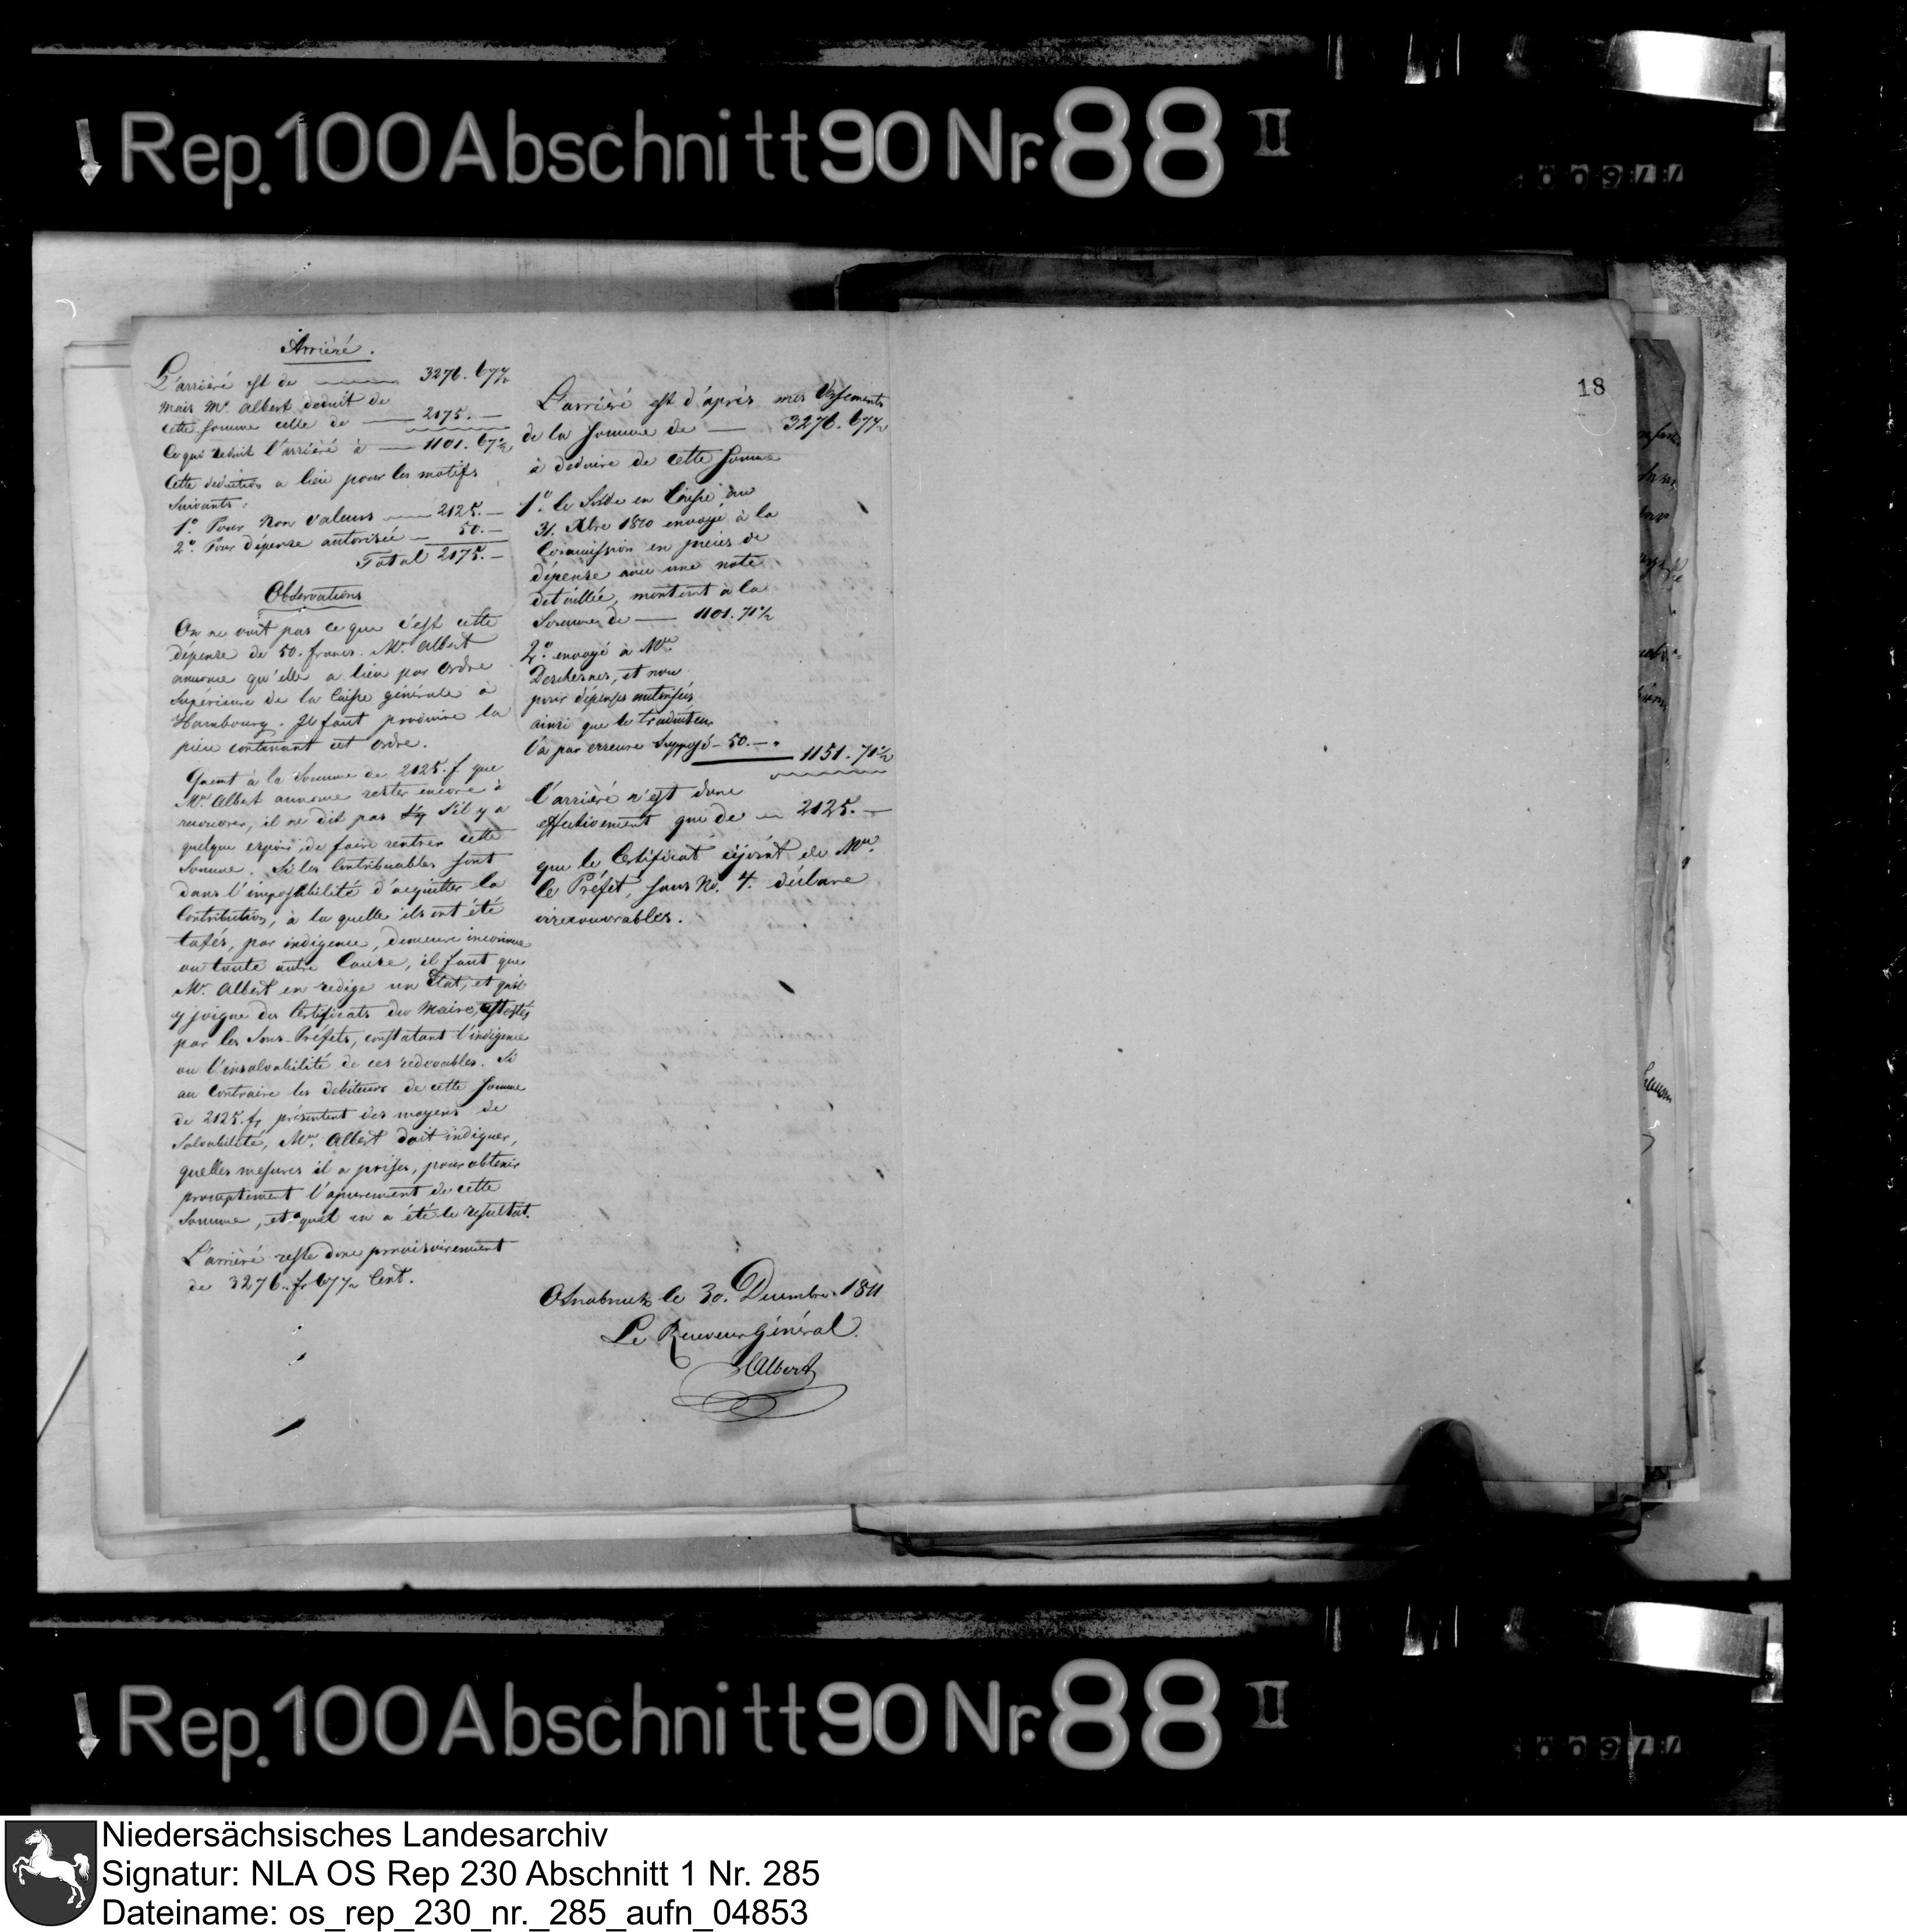 Rep. 100 Abschnitt 90 Nr. 88 II
18
Arriéré.
L'arriéré est de 3276. 67½
mais Mr. Albert deduit de
cette somme celle de 2175.—
Ce qui reduit l'arriéré à 1101. 67½
Cette deduction a lieu pour les motifs
suivants:
1º. Pour Non valeurs 2125.—
2º. Pour dépense autorisée 50.—
Total 2175.—
Observations
On ne voit pas ce que c'est cette
dépense de 50. francs. Mr. Albert
annonce qu'elle a lieu par ordre
supérieure de la Caisse générale à
Hambourg. Il faut produire la
piece contenant cet ordre.
Quant à la Somme de 2125. f que
Mr. Albert annonce rester encore à
recouvrer, il ne dit pas s'il y a
quelque espoir de faire rentrer cette
Somme. Si les Contribuables sont
dans l'impossibilité d'acquitter la
Contribution, à la quelle ils ont été
taxés, par indigence, demeure inconnue
ou toute autre Cause, il faut que
Mr. Albert en redige un Etat, et qu'il
y joigne des Certificats du Maire, attestés
par les Sous-Préfets, constatant l'indigence
ou l'insolvabilité de ces redevables. Si
au Contraire les debiteurs de cette somme
de 2125. fr présentent des moyens de
Solvabilité, Mr. Albert doit indiquer,
quelles mesures il a prises, pour obtenir
promptement l'apurement de cette
Somme, et quel en a été le resultat.
L'arriéré reste donc provisoirement
de 3276. fr 67½ Cent.
L'arriéré est d'après mes Versements
de la somme de 3276. 67½
à deduire de cette somme
1º. le Solde en Caisse au
31. Xbre 1810 envoyé à la
Commission en pieces de
dépense avec une note
detaillée, montant à la
Somme de 1101. 71½
2º. envoyé à Mr.
Deschesnes, et non
pour dépenses autorisées
ainsi que le traducteur
l'a par erreure supposé 50.— 1151. 71½
l'arriéré n'est donc
effectivement que de 2125.—
que le Certificat cijoint de Mr.
le Préfet, sous No. 4. déclare
irrecouvrables.
Osnabruck le 30. Decembre 1811
Le Receveur Général.
Albert
Rep. 100 Abschnitt 90 Nr. 88 II
Niedersächsisches Landesarchiv
Signatur: NLA OS Rep 230 Abschnitt 1 Nr. 285
Dateiname: os_rep_230_nr._285_aufn_04853